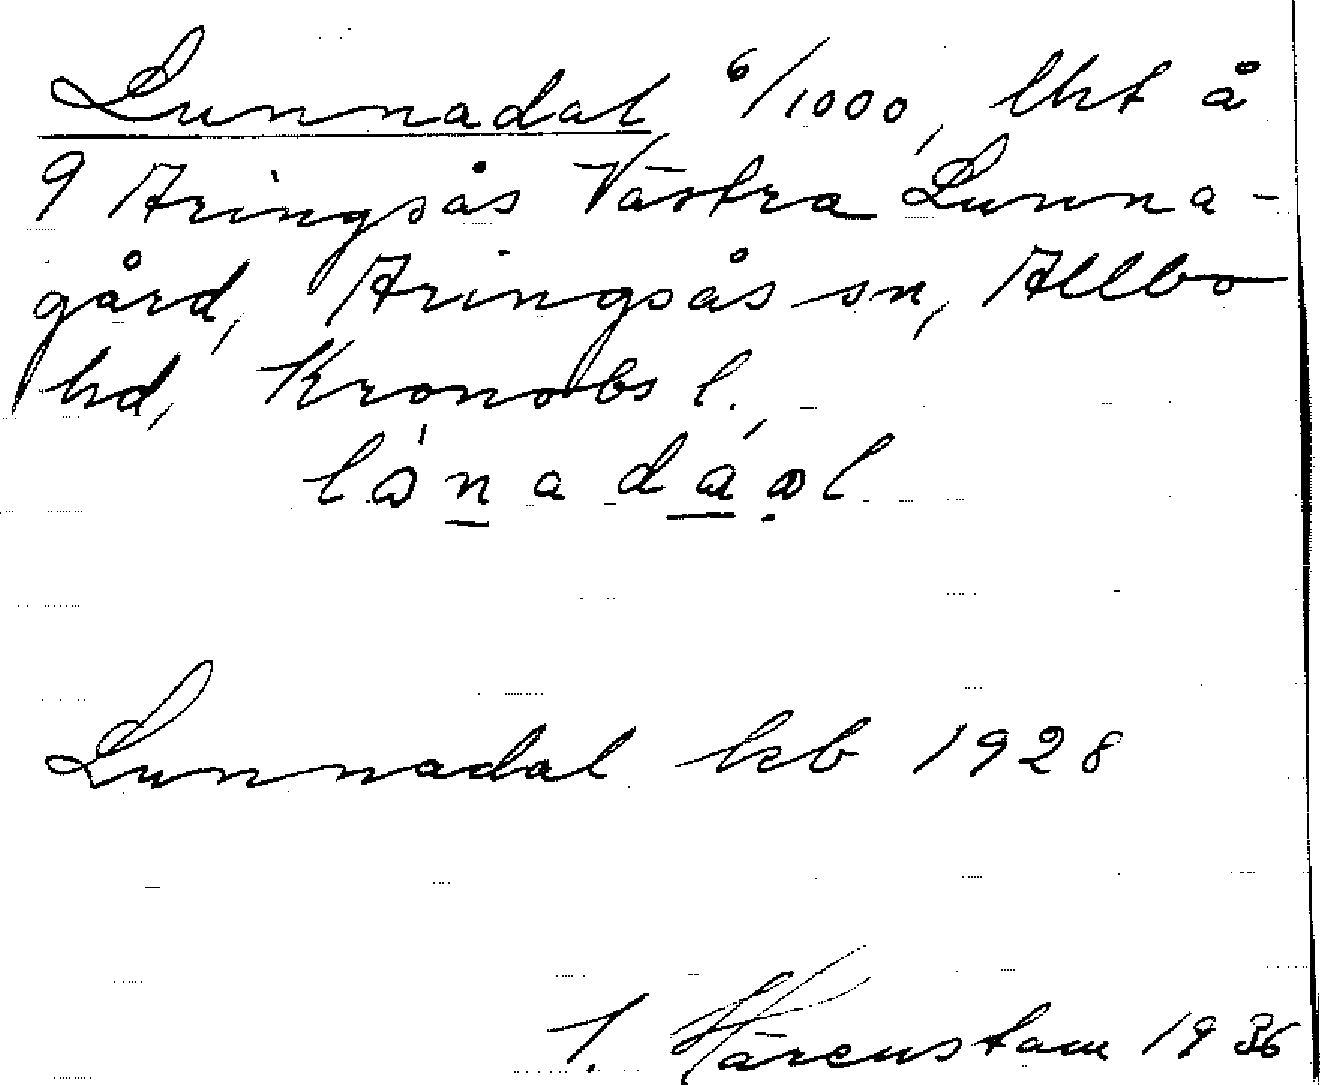 Lunnadal, 6/1000, lht å
9 Aringsås Västra Lunna-
gård, Aringsås sn, Allbo
hd, Kronobs l.
Lunnadal kb 1928
1936